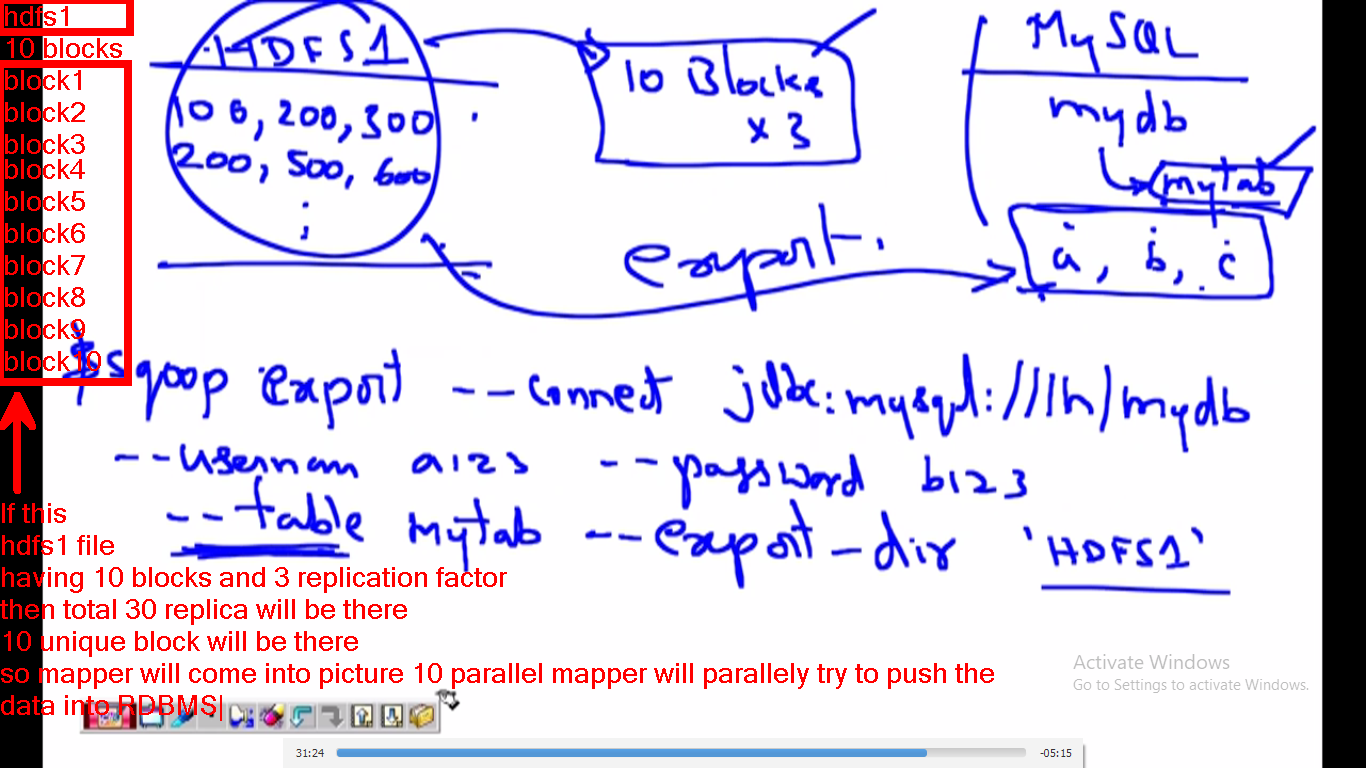 hdfs1
10 blocks
block1
block2
block3
block4
block5
block6
block7
block8
block9
block10
HDFS1
100, 200, 300
200, 500, 600
:
10 Blocks
x 3
MySQL
mydb
mytab
a, b, c
export
$sqoop export --connect jdbc:mysql://lh/mydb
--usernam a123 --password b123
--table mytab --export-dir 'HDFS1'
If this
hdfs1 file
having 10 blocks and 3 replication factor
then total 30 replica will be there
10 unique block will be there
so mapper will come into picture 10 parallel mapper will parallely try to push the
data into RDBMS
Activate Windows
Go to Settings to activate Windows.
31:24
-05:15